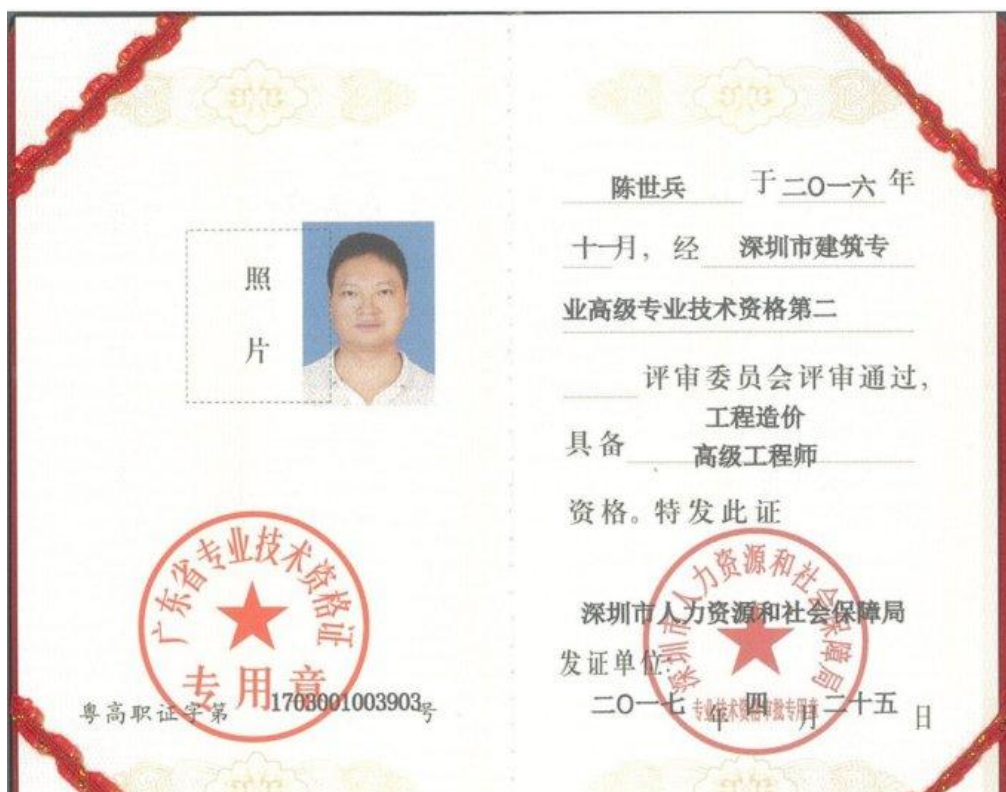 照
片
广东省专业技术资格证
专用章
粤高职证字第 1703001003903号
陈世兵 于二〇一六年
十一月，经 深圳市建筑专
业高级专业技术资格第二
评审委员会评审通过，
工程造价
具备 高级工程师
资格。特发此证
深圳市人力资源和社会保障局
深圳市人力资源和社会保障局
发证单位：
专业技术资格审批专用章
二〇一七年四月二十五日